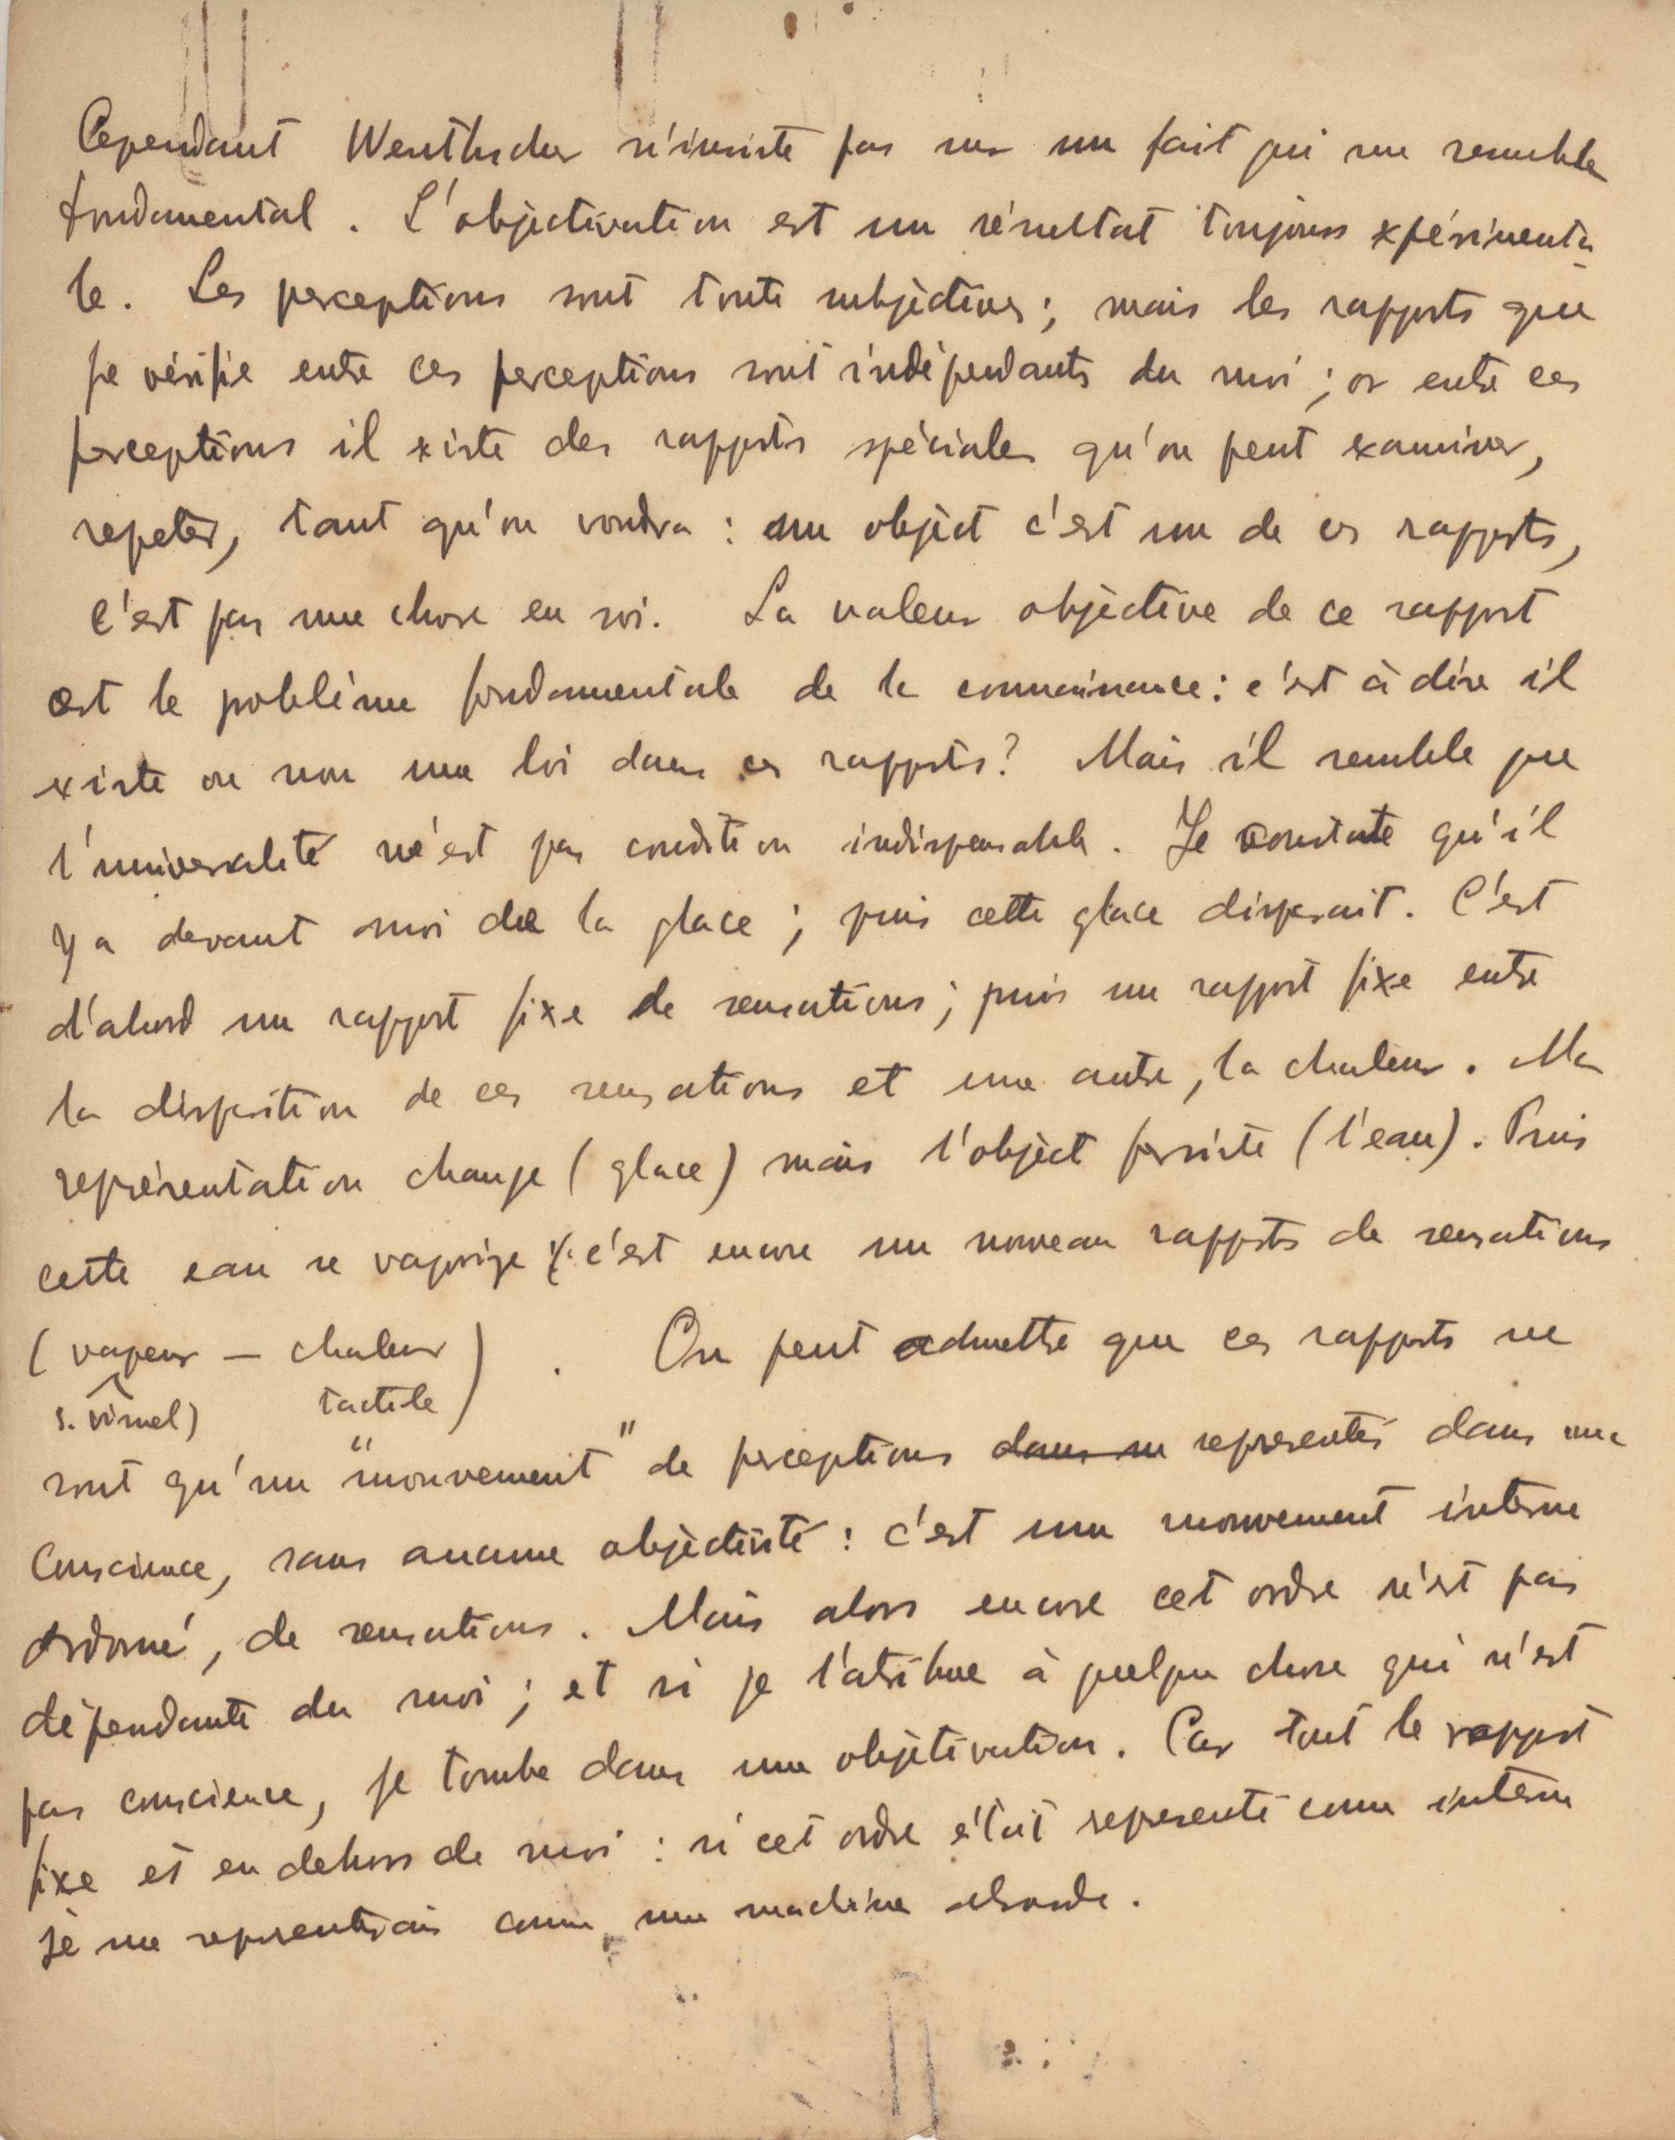 Cependant Wentscher n'insiste pas sur un fait qui me semble
fondamental. L'objectivation est un résultat toujours expérimenta-
le. Les perceptions sont toute subjectives; mais les rapports que
je vérifie entre ces perceptions sont indépendants du moi; or entre ces
perceptions il existe des rapports spéciales qu'on peut examiner,
repeter, tant qu'on voudra : un object c'est un de ces rapports,
c'est pas une chose en soi. La valeur objective de ce rapport
est le poblème fondamentale de la connaissance: c'est à dire il
existe ou non une loi dans ces rapports? Mais il semble que
l'universalité ne'est pas condition indispensable. Je constate qu'il
y a devant moi de la glace; puis cette glace disparait. C'est
d'abord un rapport fixe de sensations; puis un rapport fixe entre
la disparition de ces sensations et une autre, la chaleur. Ma
représentation change (glace) mais l'object persiste (l'eau). Puis
cette eau se vaporise; c'est encore un nouveau rapports de sensations
(vapeur — chaleur) . On peut admettre que ces rapports ne
s. visuel) tactile
sont qu'un "mouvement" de perceptions dans un representés dans une
conscience, sans aucune objectivité : c'est un mouvement interne
ordonné, de sensations. Mais alors encore cet ordre n'est pas
dépendante du moi; et si je l'atribue à quelque chose qui n'est
pas conscience, je tombe dans une objetivation. Car tout le rapport
fixe est en dehors de moi : si cet ordre était representé comme interne
je me representerais comme une machine absurde.